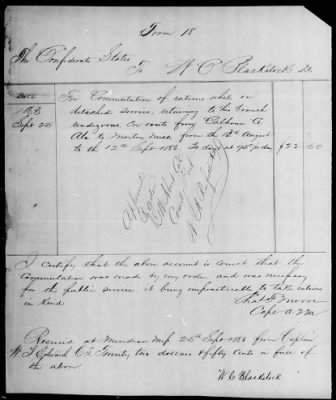 Form 18
The Confederate States
To W C Blackstock Dr.
Date
1863
Sept 25
For Commutation of rations while on
detached service, returning to his Command
rendezvous. En route from Calhoun Co
Ala to Morton Miss from the 12th August
to the 12th Sept
I certify that the above account is correct that the
commutation was made by my order and was necessary
for the public service, it being impracticable to take rations
in kind
Capt
Received at Meridian Miss 25th Sept 186 from Captain
Twenty two dollars & fifty cents in full of
the above
W C Blackstock